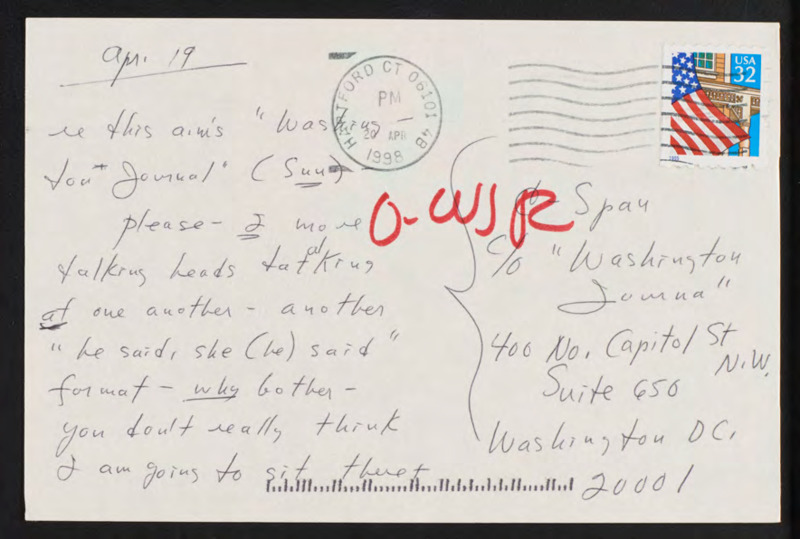 Apr. 19
re this a.m.'s "Washing
ton Journal" (Sun)
please - 2 more
talking heads talking
at one another - another
"he said, she (he) said"
format - why bother -
you don't really think
I am going to sit there
HARTFORD CT 06101 4B
PM
20 APR
1998
USA
32
O-WJR
C-Span
c/o "Washington
Journa"
400 No. Capitol St
N.W.
Suite 650
Washington DC.
20001